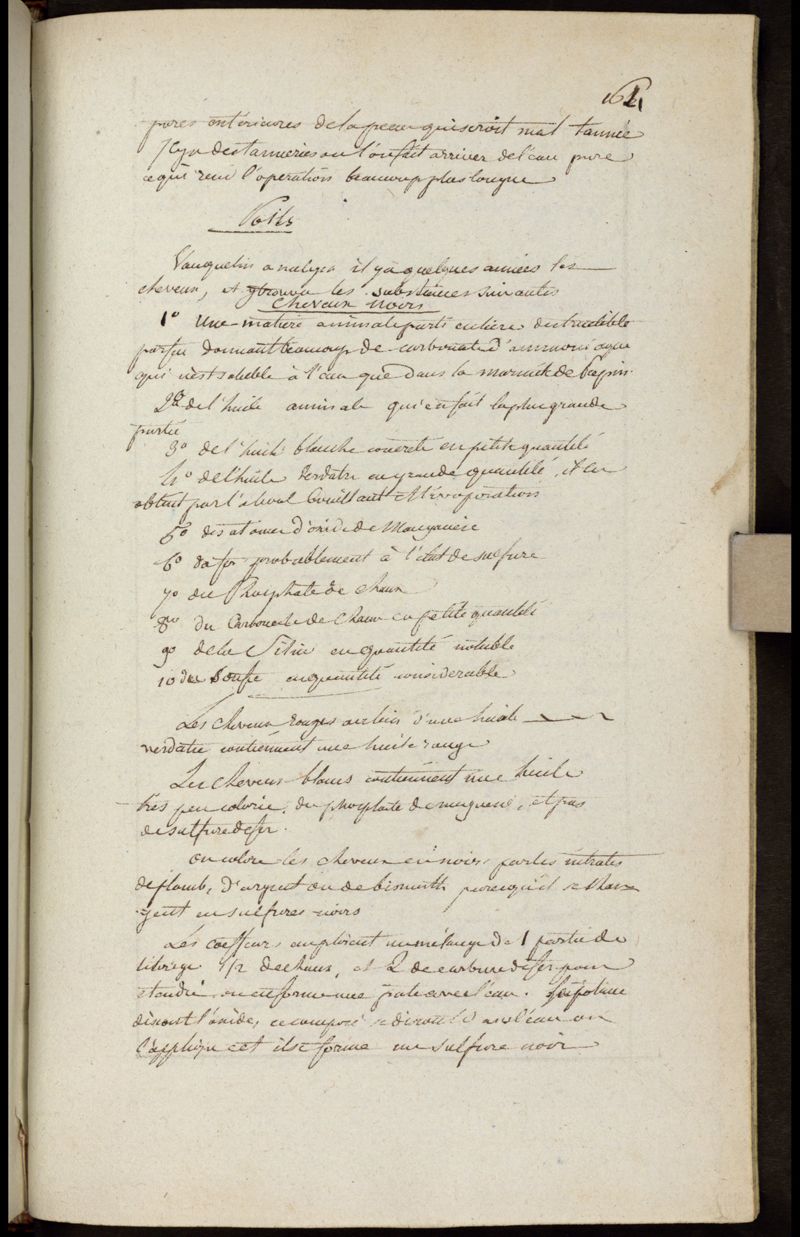 164
pores intérieures de la peau qui seroit mal tannée
Il y a des tanneries ou l'on fait arriver de l'eau pure
ce qui rend l'operation beaucoup plus longue
Poils
Vauquelin analysa il y a quelques années les
cheveux, et y trouva les substances suivantes
Cheveux noirs
1° Une matiere animale particuliere destructible
par feu donnant beaucoup de carbonate d'ammoniaque
qui n'est soluble à l'eau que dans la marmite de Papin.
2° de l'huile animale qui en fait la plus grande
partie
3° de l'huile blanche concrete en petite quantité
4° de l'huile verdatre en grande quantité, et
obtient par l'alcool bouillant et l'évaporation
5° des atomes d'oxide de Manganese
6° du fer probablement à l'état de sulfure
7° du Phosphate de chaux
8° du Carbonate de Chaux en petite quantité
9° de la Silice en quantité notable
10 du Soufre en quantité considerable
Les cheveux rouges au lieu d'une huile
verdatre contiennent une huile rouge
Les cheveux blancs contiennent une huile
très peu colorée, du phosphate de magnesie, et pas
de sulfure de fer.
On colore les cheveux en noirs par les nitrates
de plomb, d'argent ou de bismuth parcequ'il se chan
gent en sulfures noirs
Les coeffeurs emploient un mélange de 1 partie de
litharge 1/2 de chaux, et 2 de carbure de fer pour
etendre on en forme une pate avec l'eau.
disout l'oxide, ce composé se dissout dans l'eau on
l'applique et il se forme un sulfure noir